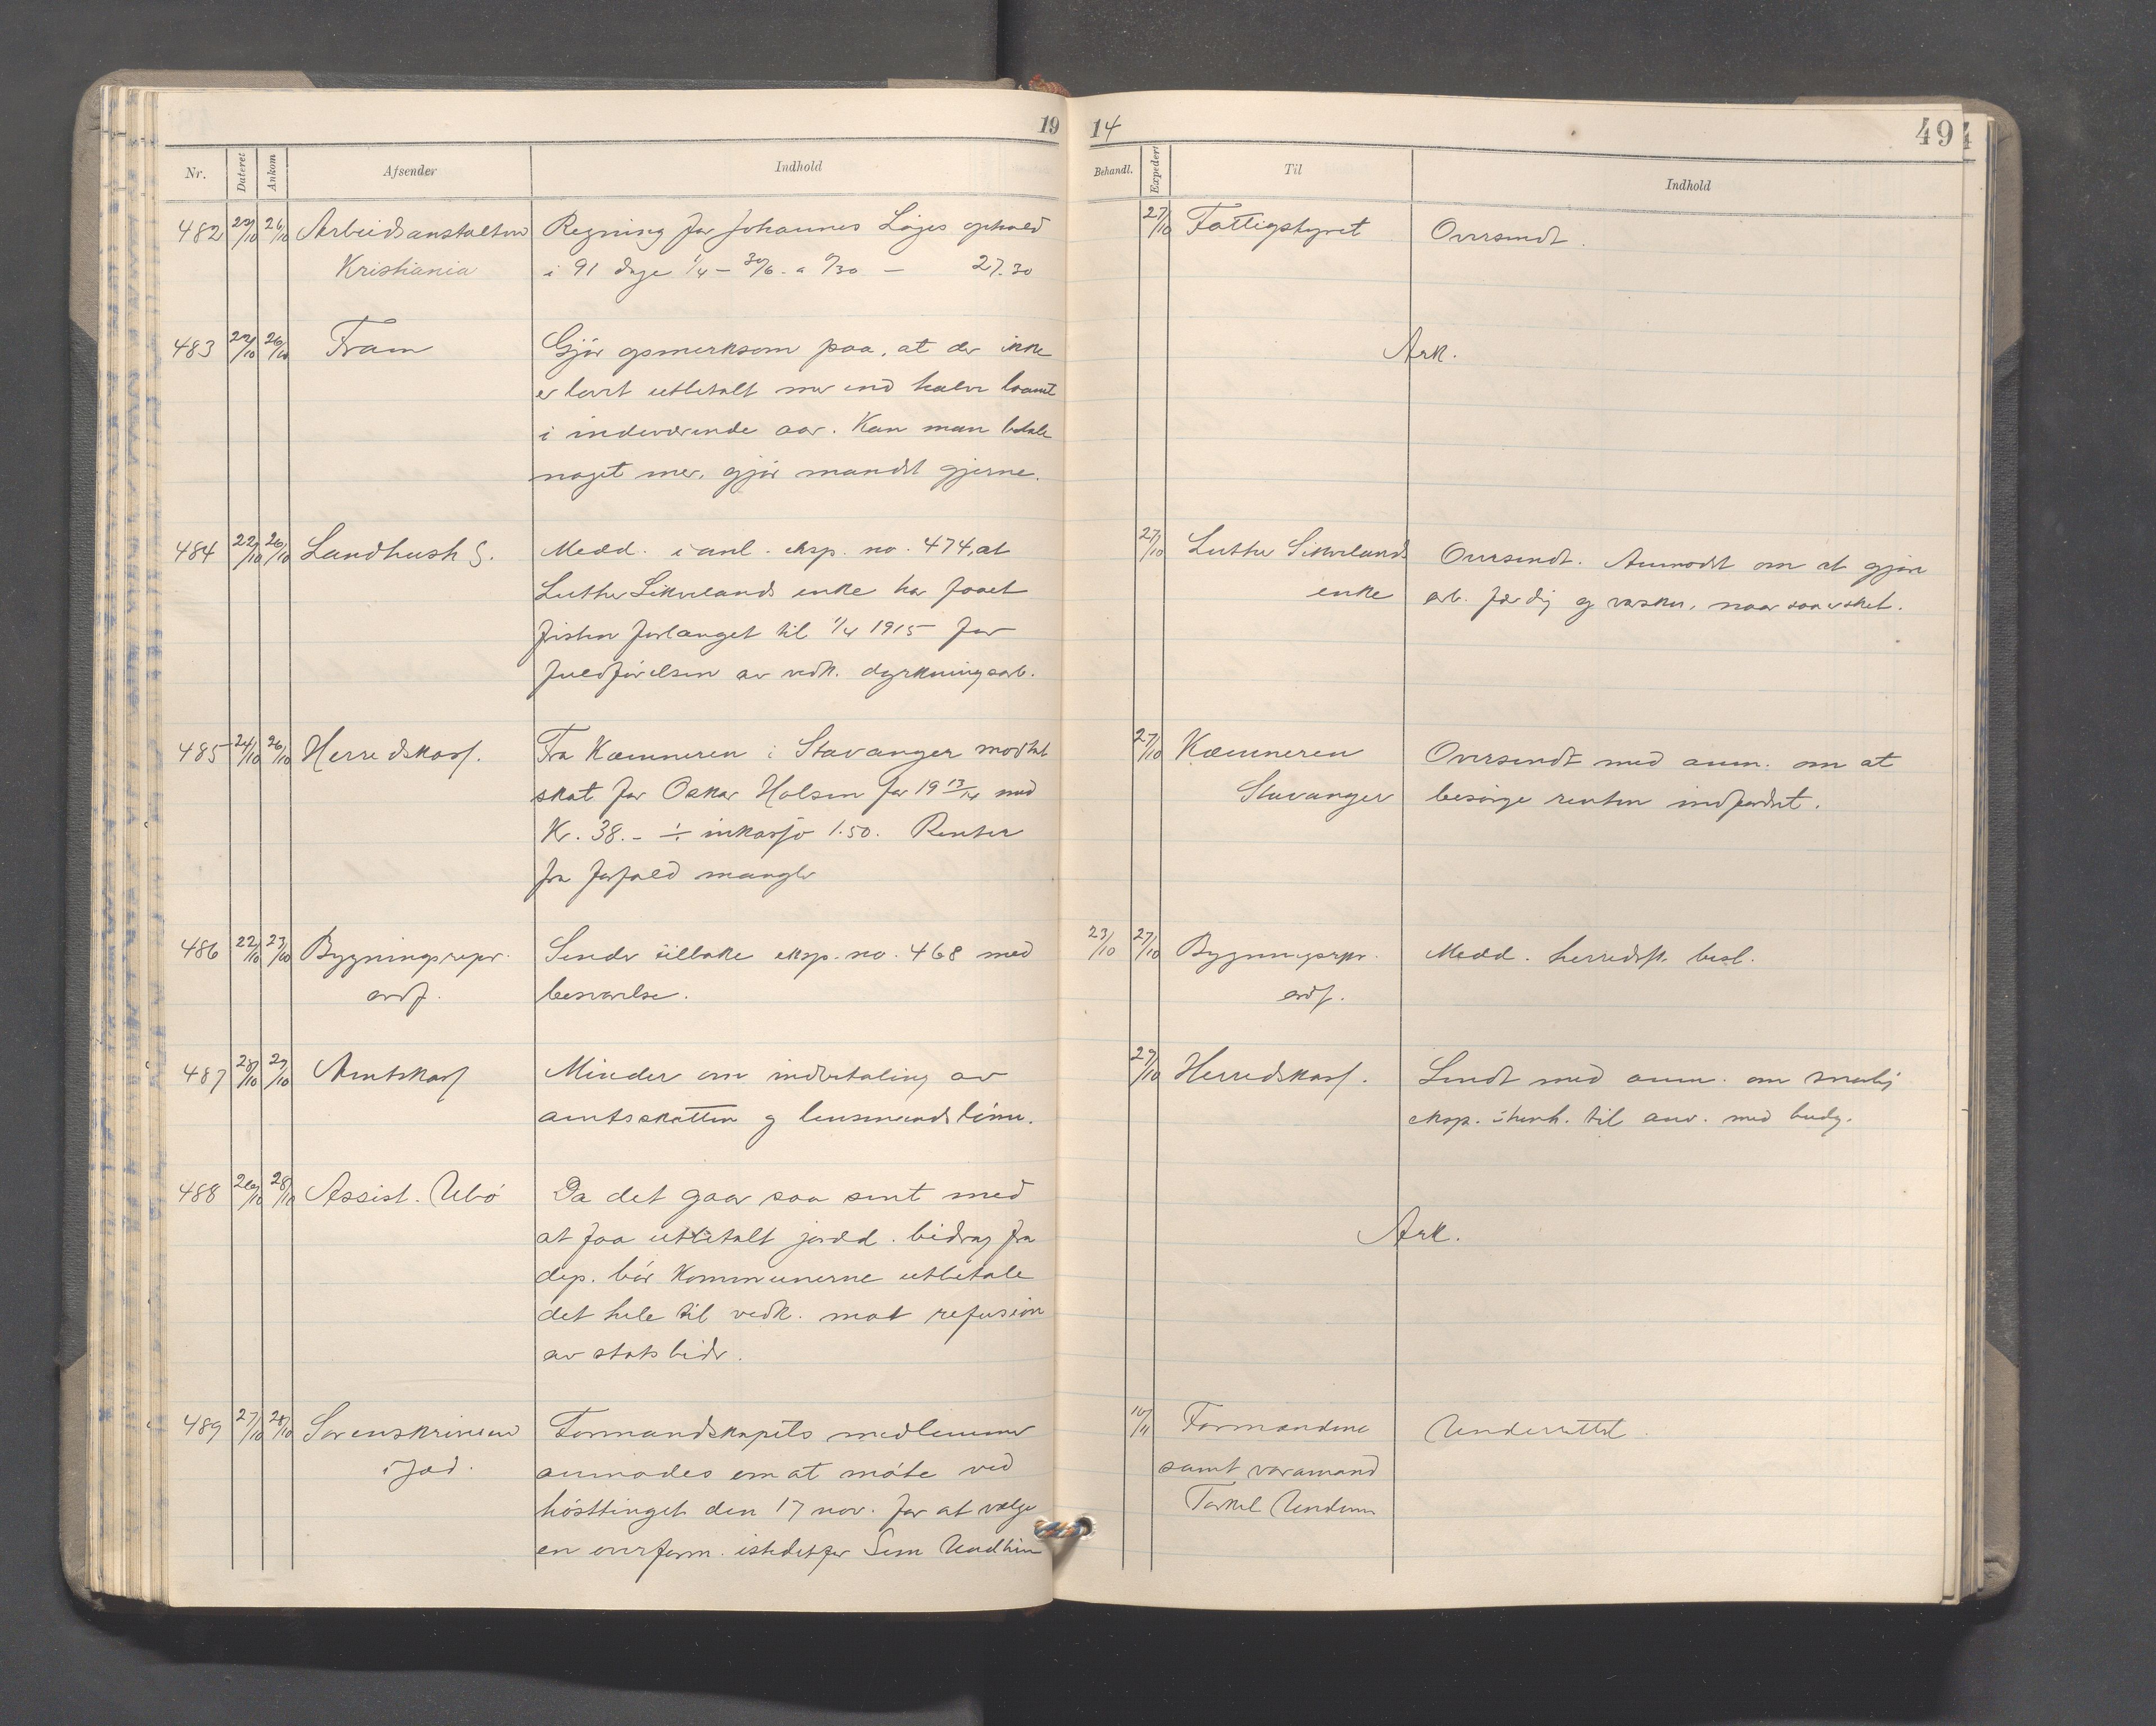 19 14 49
Nr. Dateret Ankom Afsender Indhold Behandl. Expedert Til Indhold
482 22/10 26/10 Arbeidsanstalten Regning for Johannes Löges ophold 27/10 Fattigstyret Oversendt.
Kristiania i 91 dage 1/4 - 30/6 a 0/30 - 27.30
483 22/10 26/10 Fram Gjör opmerksom paa, at der ikke Ark.
er levert utbetalt mer end halve
i indeværende aar. Kan man betale
noget mer, gjör mandst gjerne.
484 22/10 26/10 Landhush S. Medd. i anl. eksp. no. 474, at 27/10 Luther Sikvelands Oversendt. Anmodet om at gjöre
Luther Sikvelands enke har faaet enke arb. færdig og varsku, naar saa er sket.
fristen forlænget til 1/4 1915 for
fuldförelsen av vedk. dyrkningsarb.
485 24/10 26/10 Herredskass. Fra Kæmneren i Stavanger modtat 27/10 Kæmneren Oversendt med anm. om at
skat for Oskar Holsen for 19 13/14 med Stavanger besörge renten indfordret.
Kr. 38.- ÷ inkasso 1.50. Renter
fra forfald mangler
486 22/10 23/10 Bygningsrepr. Sender tilbake eksp. no. 468 med 23/10 27/10 Bygningsrepr. Medd. herredsst. besl.
ordf. besvarelse. ordf.
487 28/10 29/10 Amtskass Minder om indbetaling av 29/10 Herredskass. Sendt med anm. om snarlig
amtsskatten og lensmandslönn. eksp. i henh. til anv. med budg.
488 26/10 28/10 Assist. Ubö Da det gaar saa sent med Ark.
at faa utbetalt jordd. bidrag fra
dep. bör kommunerne utbetale
det hele til vedk. mot refusion
av statsbidr.
489 27/10 28/10 Sorenskriveren Formandskapets medlemmer 10/11 Formændene Underrettet.
i Jæd. anmodes om at möte ved samt varamand
hösttinget den 17 nov. for at vælge Torkel Undem
en overform. istedetfor Sem Undhein